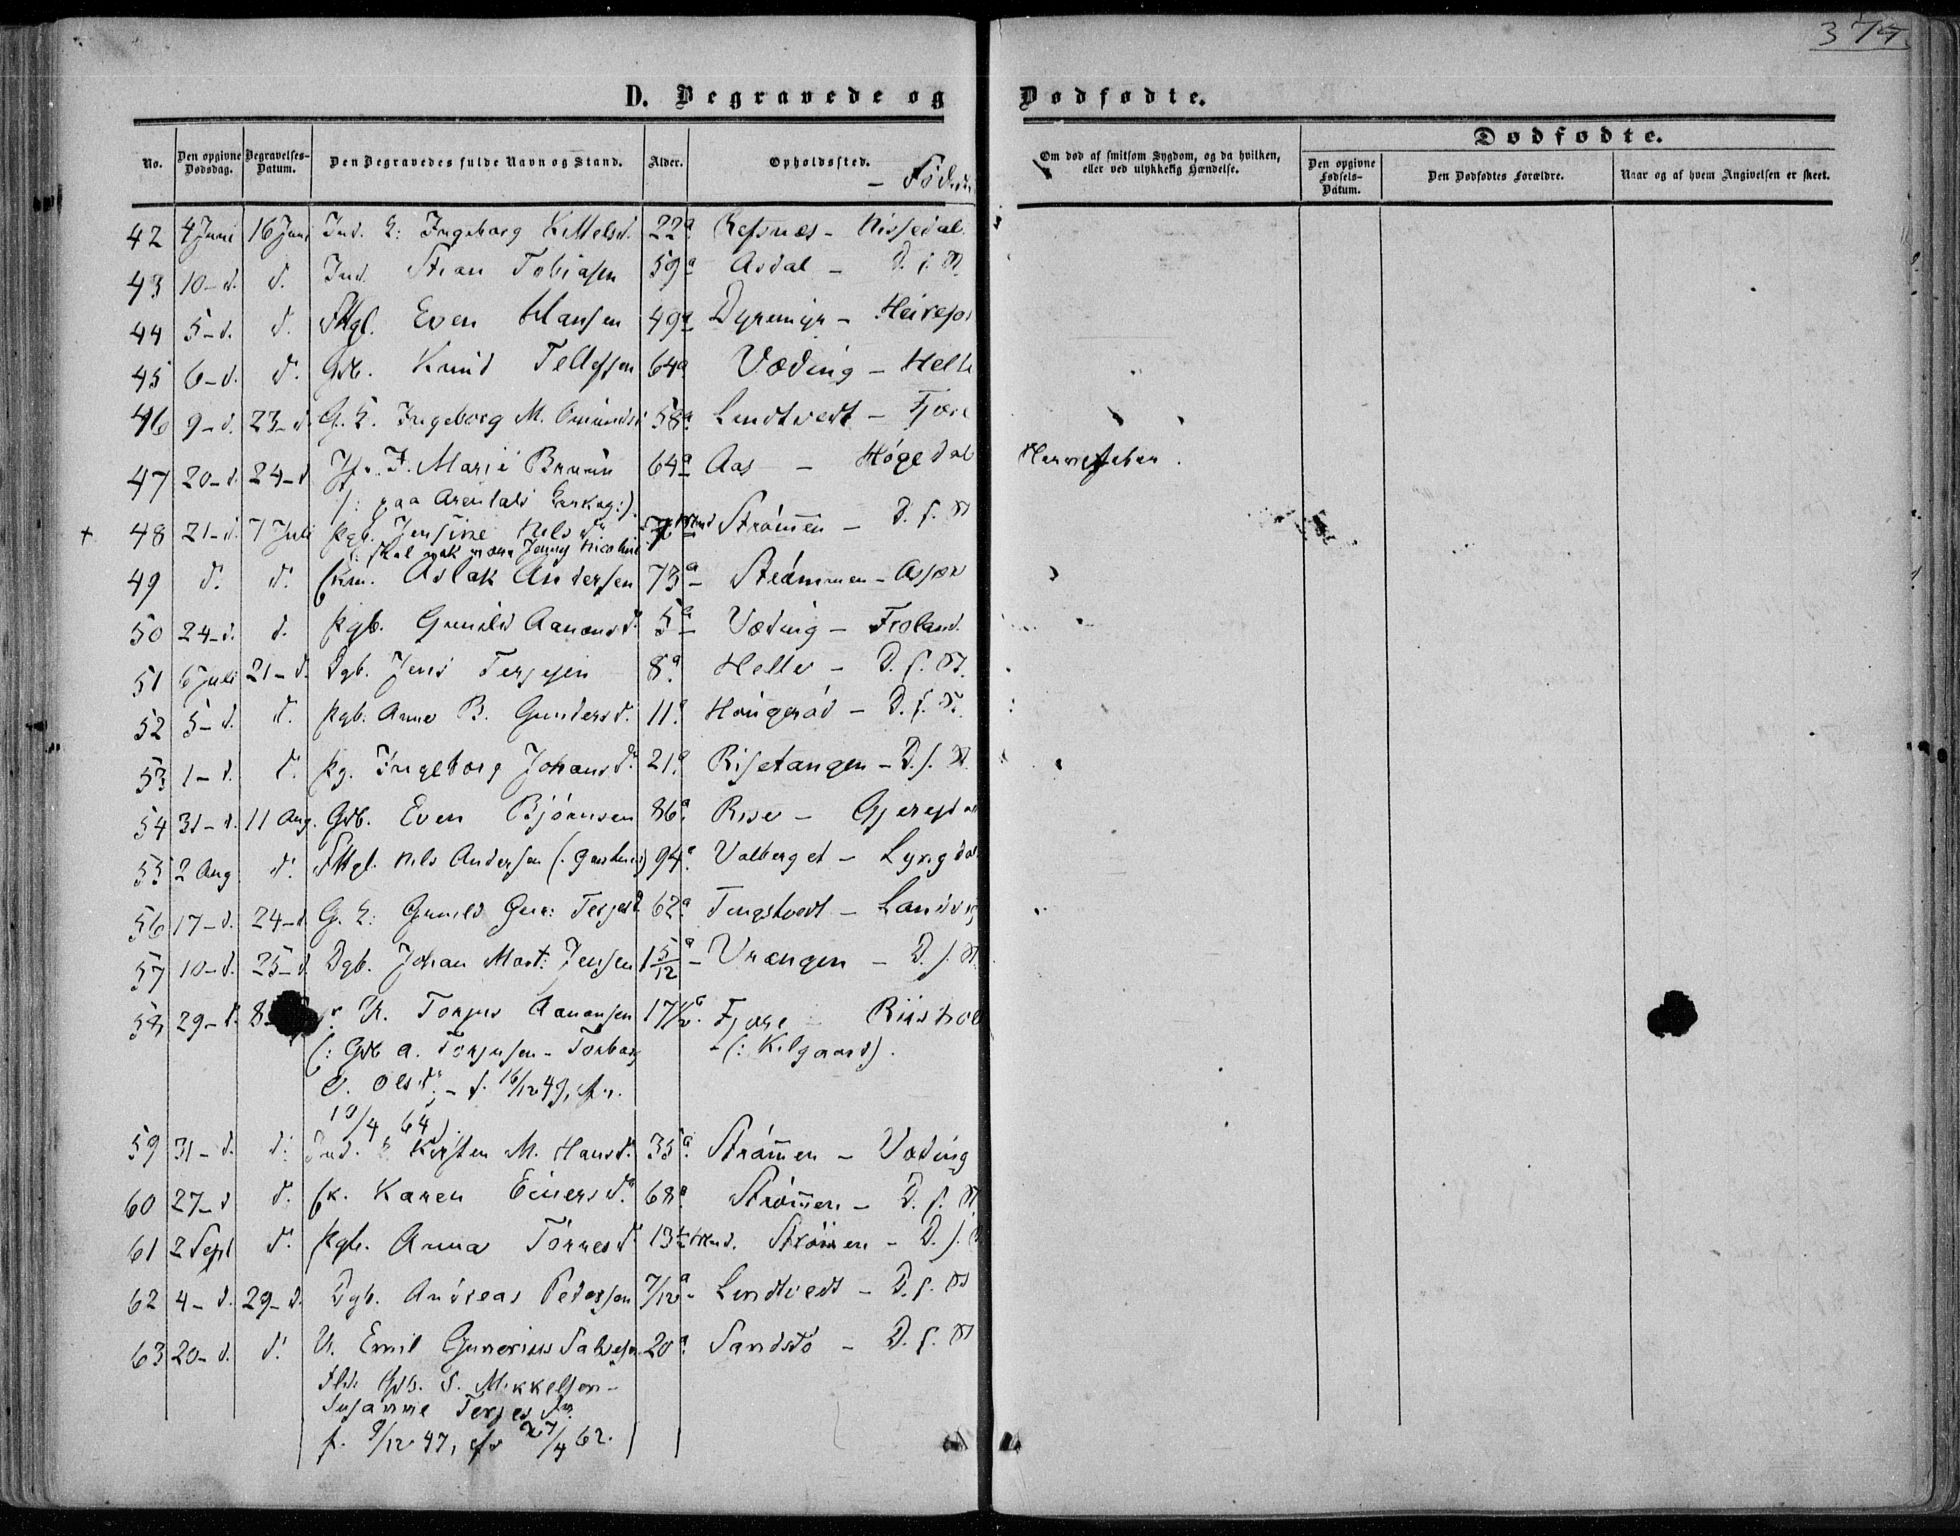 374
D. Begravede og Dødfødte.
Dødfødte.
No. Den opgivne Dødsdag. Begravelses-Datum. Den Begravedes fulde Navn og Stand. Alder. Opholdssted. Om død af smitsom Sygdom, og da hvilken, eller ved ulykkelig Hændelse. Den opgivne Fødsels-Datum. Den Dødfødtes Forældre. Naar og af hvem Angivelsen er skeet.
42 4 Juni 16 Juni Ind. E: Ingeborg Kittelsd. 22 a. Refsnæs - Nissedal
43 10 - d. d. Ind. Stian Tobiasen 59 a Asdal - D. s. St.
44 5 - d. d. Fttgl. Even Hansen 49 a Dyremyr -
45 6 - d. d. Gdb. Knud Tellefsen 64 a. Væding - Helle
46 9 - d. 23 - d. G. E. Ingeborg M. 58 a. Lindtvedt - Fjære
47 20 - d. 24 - d. Jfr. F. Marie Bruun 64 a Aas - Høgedal
(: paa Arendals :)
+ 48 21 - d. 7 Juli pgb. Jensine Nilsdr Strømmen - D. s. St
skal nok være Jenny Nicoline
49 d. d. Aslak Andersen 73 a - Strømmen -
50 24 - d. d. pgb. Gunild Aanonsd. 5 a - Væding - Froland.
51 6 Juli 21 - d. Dgb. Jens Terjesen 8 a Helle - D. s. St.
52 5 - d. d. pgb. Anne B. Gundersd. 11 a. Hougerød - D. s. St.
53 1 - d. d. pg. Ingeborg Johansd. 21 a. Risetangen - D. s. St.
54 31 - d. 11 Aug. Gdb. Even Bjørnsen 86 a. Rise -
55 2 Aug d. Fttgl. Nils Andersen 94 a. Valberget - Lyngdal
56 17 - d. 24 - d. G. E: Gunild Terjesd 62 a. Tingstvedt - Landvig
57 10 - d. 25 - d. Dgb. Johan Mart: Jensen 1 5/12 a - Vrængen - D. s. St.
58 29 - d. 8 U. Torjus Aanonsen 17 1/2 a. Fjære
(: Gdb A. Torjusen - Torborg - (: Kilgaard).
O. Olsdr, - f. 16/12 49,
10/4 64).
59 31 - d. d. Ind. E Kirsten M. Hansd. 35 a. Strømmen - Væding
60 27 - d d. Karen Einersd. 68 a Strømmen - D. s. St
61 2 Sept d. pgb. Anna Tørresd. 13 Strømmen - D. s.
62 4 - d. 29 - d. Dgb. Andreas Pedersen 7/12 a - Lindtvedt - D. s. St
63 20 - d. d. U. Emil Gunerius 20 a. Sandstø - D. s. St
Gdb. S. Mikkelsen -
Susanne Terjesdr.
f. 9/12 47, 27/4 62.